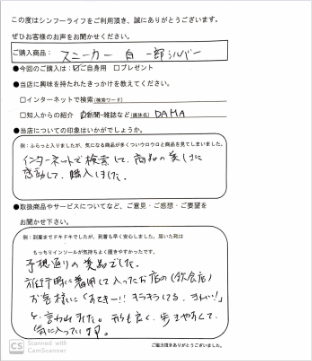 この度はシンフーライフをご利用頂き、誠にありがとうございます。
ぜひお客様のお声をお聞かせください。
ご購入商品： スニーカー 白 一部シルバー
●今回のご購入は：☑ご自身用 □プレゼント
●当店に興味を持たれたきっかけを教えてください。
□インターネットで検索(検索ワード)
□知人からの紹介 ☑新聞・雑誌など(媒体名) DAMA
●当店についての印象はいかがでしょうか。
例：ふらっと入りましたが、気になる商品が多くついウロウロと商品を見てしまいました。
インターネットで検索して、商品の美しさに
感動して、購入しました。
●取扱商品やサービスについてなど、ご意見・ご感想・ご要望を
お聞かせ下さい。
例：到着までドキドキでしたが、到着も早く安心しました。届いた靴は
もっちりインソールが気持ちよく履きやすかったです。
予想通りの美品でした。
旅行時に着用して入ったお店の(飲食店)
お客様に「おせきー!! きらきらしてる。きれい!!」
と言われました。形も良く、歩きやすくて
気に入っています。
ご協力頂きありがとうございました。
CS Scanned with
CamScanner